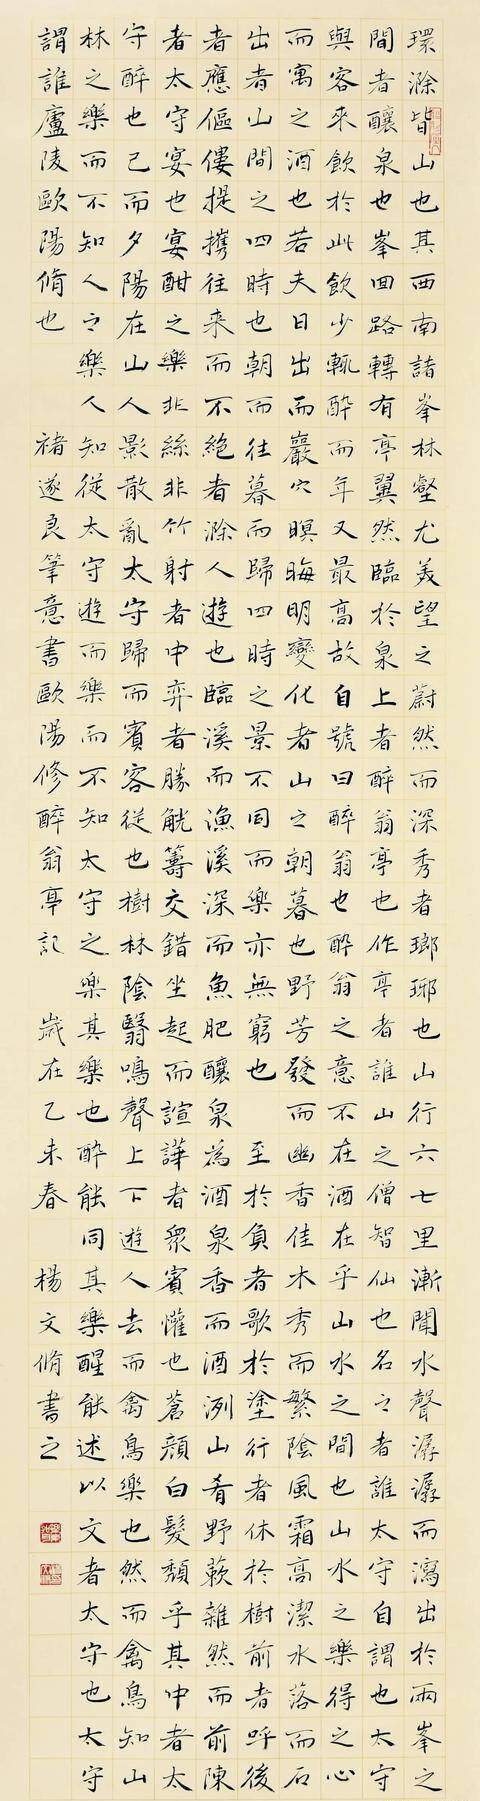 環滁皆山也其西南諸峯林壑尤美望之蔚然而深秀者瑯琊也山行六七里漸聞水聲潺潺而瀉出於兩峯之
間者釀泉也峯回路轉有亭翼然臨於泉上者醉翁亭也作亭者誰山之僧智仙也名之者誰太守自謂也太守
與客來飲於此飲少輒醉而年又最高故自號曰醉翁也醉翁之意不在酒在乎山水之間也山水之樂得之心
而寓之酒也若夫日出而巖穴暝晦明變化者山之朝暮也野芳發而幽香佳木秀而繁陰風霜高潔水落而石
出者山間之四時也朝而往暮而歸四時之景不同而樂亦無窮也 至於負者歌於塗行者休於樹前者呼後
者應傴僂提攜往來而不絕者滁人遊也臨溪而漁溪深而魚肥釀泉為酒泉香而酒洌山肴野蔌雜然而前陳
者太守宴也宴酣之樂非絲非竹射者中弈者勝觥籌交錯坐起而諠譁者眾賓懽也蒼顏白髮頹乎其中者太
守醉也已而夕陽在山人影散亂太守歸而賓客從也樹林陰翳鳴聲上下遊人去而禽鳥樂也然而禽鳥知山
林之樂而不知人之樂人知從太守遊而樂而不知太守之樂其樂也醉能同其樂醒能述以文者太守也太守
謂誰廬陵歐陽脩也 褚遂良筆意書歐陽修醉翁亭記 歲在乙未春 楊文脩書之